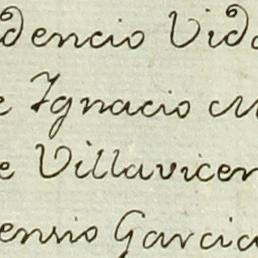 dencio Vida
e Ignacio M
e Villavicen
ensio Garcia